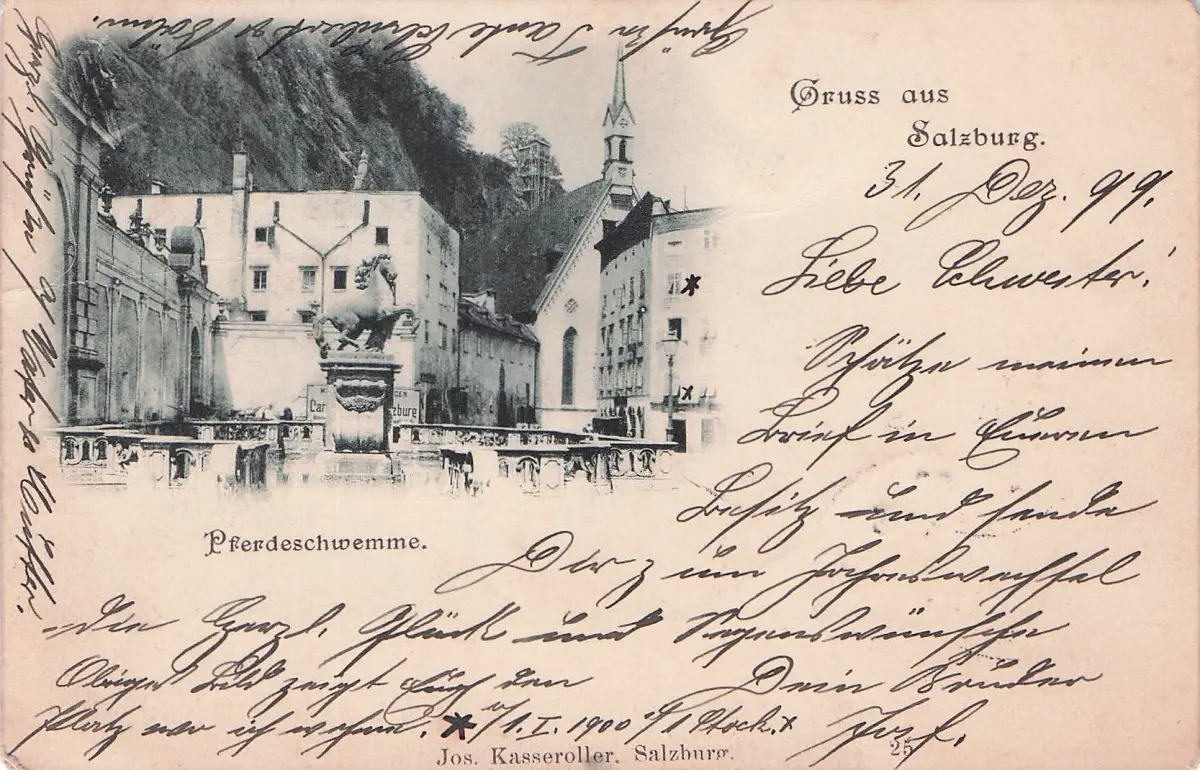 Gruss aus
Salzburg.
31. Dez. 99.
Liebe Schwester!
Schätze meinen
Brief in Eueren
Besitz und sende
Dir zum Jahreswechsel
die herzl. Glück und Segenswünsche
Dein Bruder
Josef.
Obiges Bild zeigt Euch den
Platz wo ich wohne. * 1. I. 1900 1 Stock. x
Pferdeschwemme.
Jos. Kasseroller, Salzburg.
25
Herzl. Grüße a. Vater u. Mutter.
Grüße Tante
Car
zburg